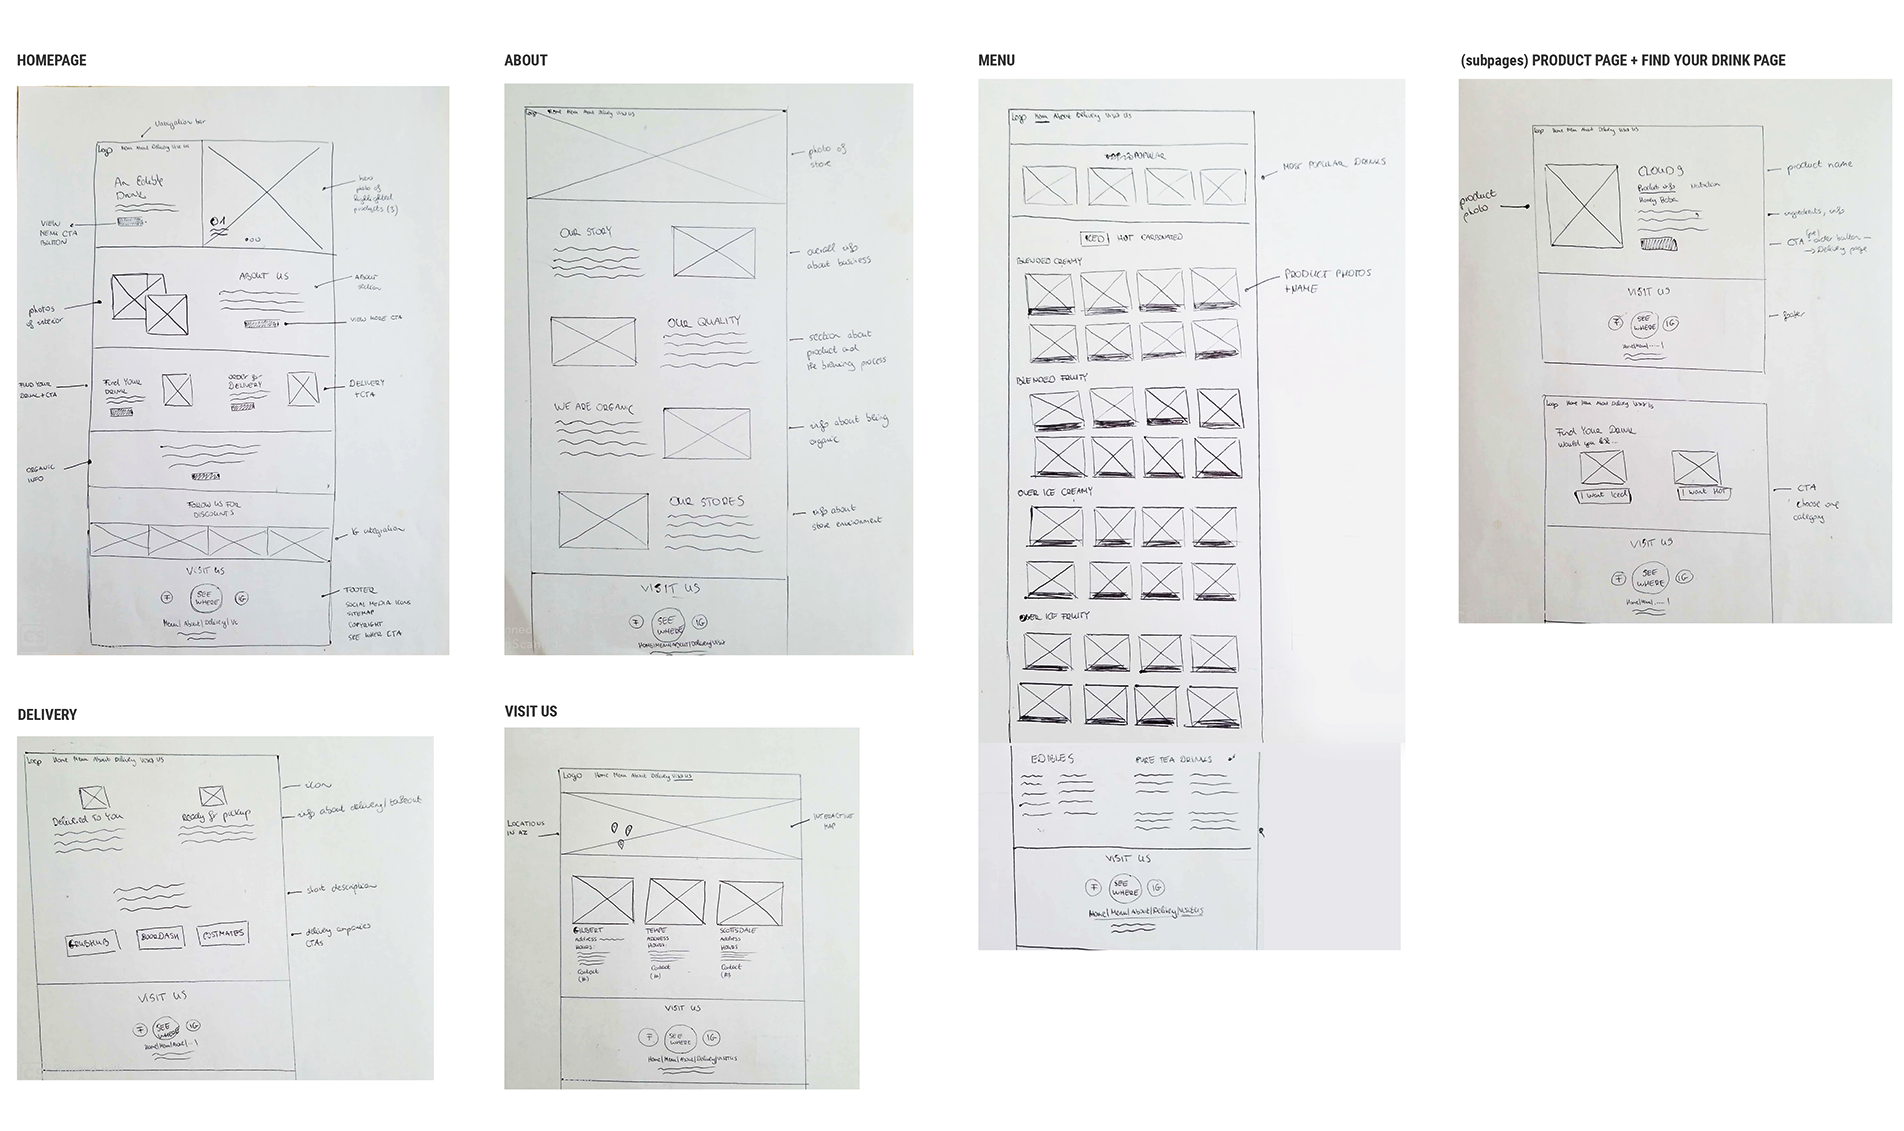 HOMEPAGE
Navigation bar
Logo Home Menu About Delivery Visit US
An Edible
Drink
01
VIEW
MENU CTA
BUTTON
hero
photo of
highlighted
products (3)
photos
of interior
ABOUT US
ABOUT
section
VIEW MORE CTA
FIND YOUR
DRINK + CTA
Find Your
DRINK
order for
DELIVERY
DELIVERY
+ CTA
ORGANIC
INFO
FOLLOW US FOR
DISCOUNTS
IG integration
VISIT US
F
SEE
WHERE
IG
Menu/About/Delivery/Us
FOOTER
SOCIAL MEDIA ICONS
SITEMAP
COPYRIGHT
SEE WHER CTA
ABOUT
Logo Home Menu About Delivery Visit US
photo of
store
OUR STORY
overall info
about business
OUR QUALITY
section about
product and
the brewing process
WE ARE ORGANIC
info about being
organic
OUR STORES
info about
store environment
VISIT US
F
SEE
WHERE
IG
HOME/MENU/ABOUT/DELIVERY/VISIT
MENU
Logo Menu About Delivery Visit US
POPULAR
MOST POPULAR DRINKS
ICED HOT CARBONATED
BLENDED CREAMY
PRODUCT PHOTOS
+NAME
BLENDED FRUITY
OVER ICE CREAMY
OVER ICE FRUITY
EDIBLES
PURE TEA DRINKS
VISIT US
F
SEE
WHERE
IG
Home/Menu/About/Delivery/Visit US
(subpages) PRODUCT PAGE + FIND YOUR DRINK PAGE
Logo Home Menu About Delivery Visit US
product
photo
CLOUD 9
Product info Nutrition
Honey Boba
product name
ingredients, info
CTA - order button
→ Delivery page
VISIT US
F
SEE
WHERE
IG
Home/Menu/.....!
footer
Logo Home Menu About Delivery Visit US
Find Your Drink
Would you like...
I want Iced
I want HOT
CTA
choose one
category
VISIT US
F
SEE
WHERE
IG
Home/Menu/.....!
DELIVERY
Logo Home Menu About Delivery Visit US
icon
Delivered To You
Ready for pickup
info about delivery/takeout
short description
GRUBHUB
DOORDASH
POSTMATES
delivery companies
CTAs
VISIT US
F
SEE
WHERE
IG
Home/Menu/About/...!
VISIT US
Logo Home Menu About Delivery Visit US
LOCATIONS
IN AZ
INTERACTIVE
MAP
GILBERT
Address
HOURS:
Contact
TEMPE
ADDRESS
HOURS
Contact
SCOTTSDALE
ADDRESS
HOURS
Contact
VISIT US
F
SEE
WHERE
IG
Home/Menu/About/Delivery/VISIT US